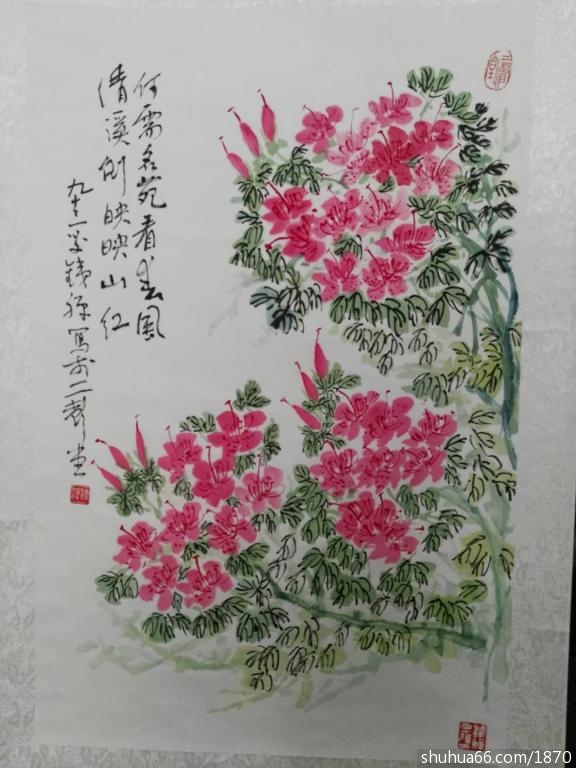 何需名苑看春风
清溪倒映映山红
九十一叟钱
写于二
堂
shuhua66.com/1870